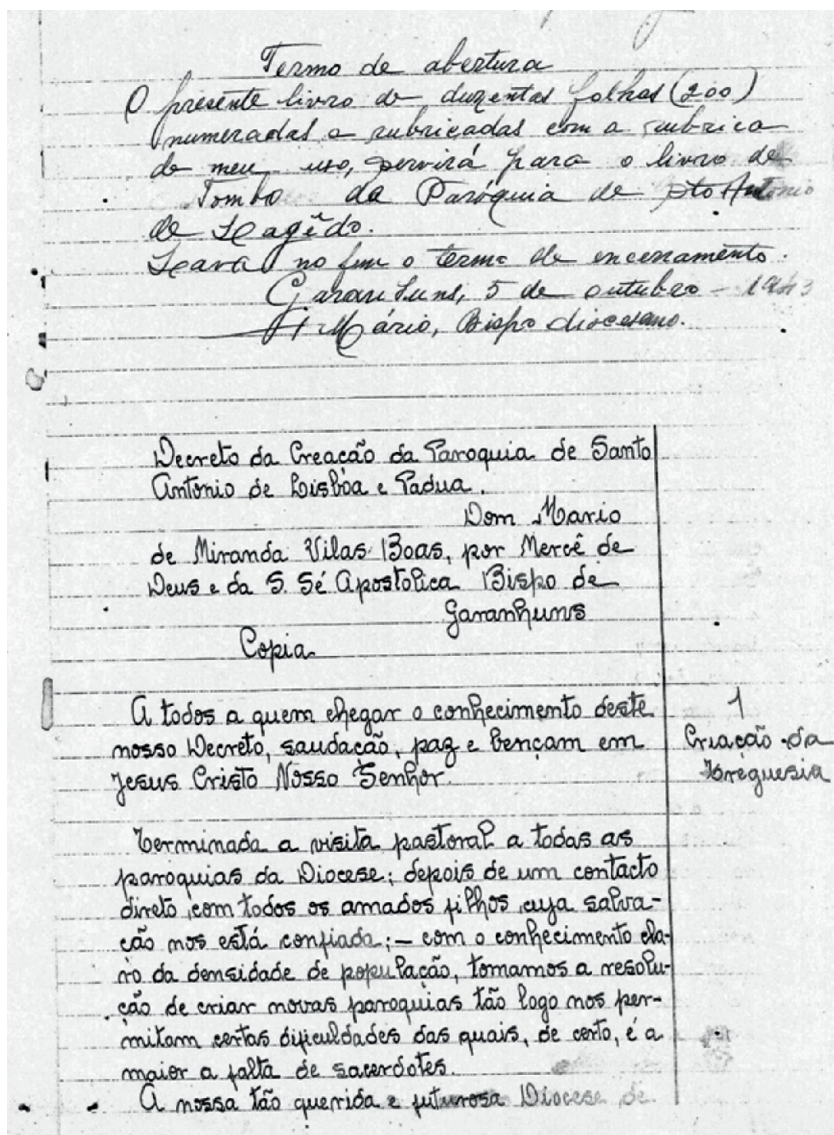 Termo de abertura
O presente livro de duzentas folhas (200)
numeradas e rubricadas com a rubrica
de meu uso, servirá para o livro de
Tombo da Paróquia de Sto Antonio
de Lagêdo.
Leava no fim o termo de encerramento.
Garanhuns, 5 de outubro - 1943
+ Mário, Bispo diocesano.
Decreto da Creacão da Paroquia de Santo
Antonio de Lisbôa e Padua.
Dom Mario
de Miranda Vilas Boas, por Mercê de
Deus e da S. Sé Apostolica Bispo de
Garanhuns
Copia
A todos a quem chegar o conhecimento deste
nosso Decreto, saudacão, paz e bençam em
Jesus Cristo Nosso Senhor.
1
Criacão da
Freguesia
Terminada a visita pastoral a todas as
paroquias da Diocese; depois de um contacto
direto com todos os amados filhos cuja salva-
cão nos está confiada; - com o conhecimento cla-
ro da densidade de populacão, tomamos a resolu-
cão de criar novas paroquias tão logo nos per-
mitam certas dificuldades das quais, de certo, é a
maior a falta de sacerdotes.
A nossa tão querida e futurosa Diocese de